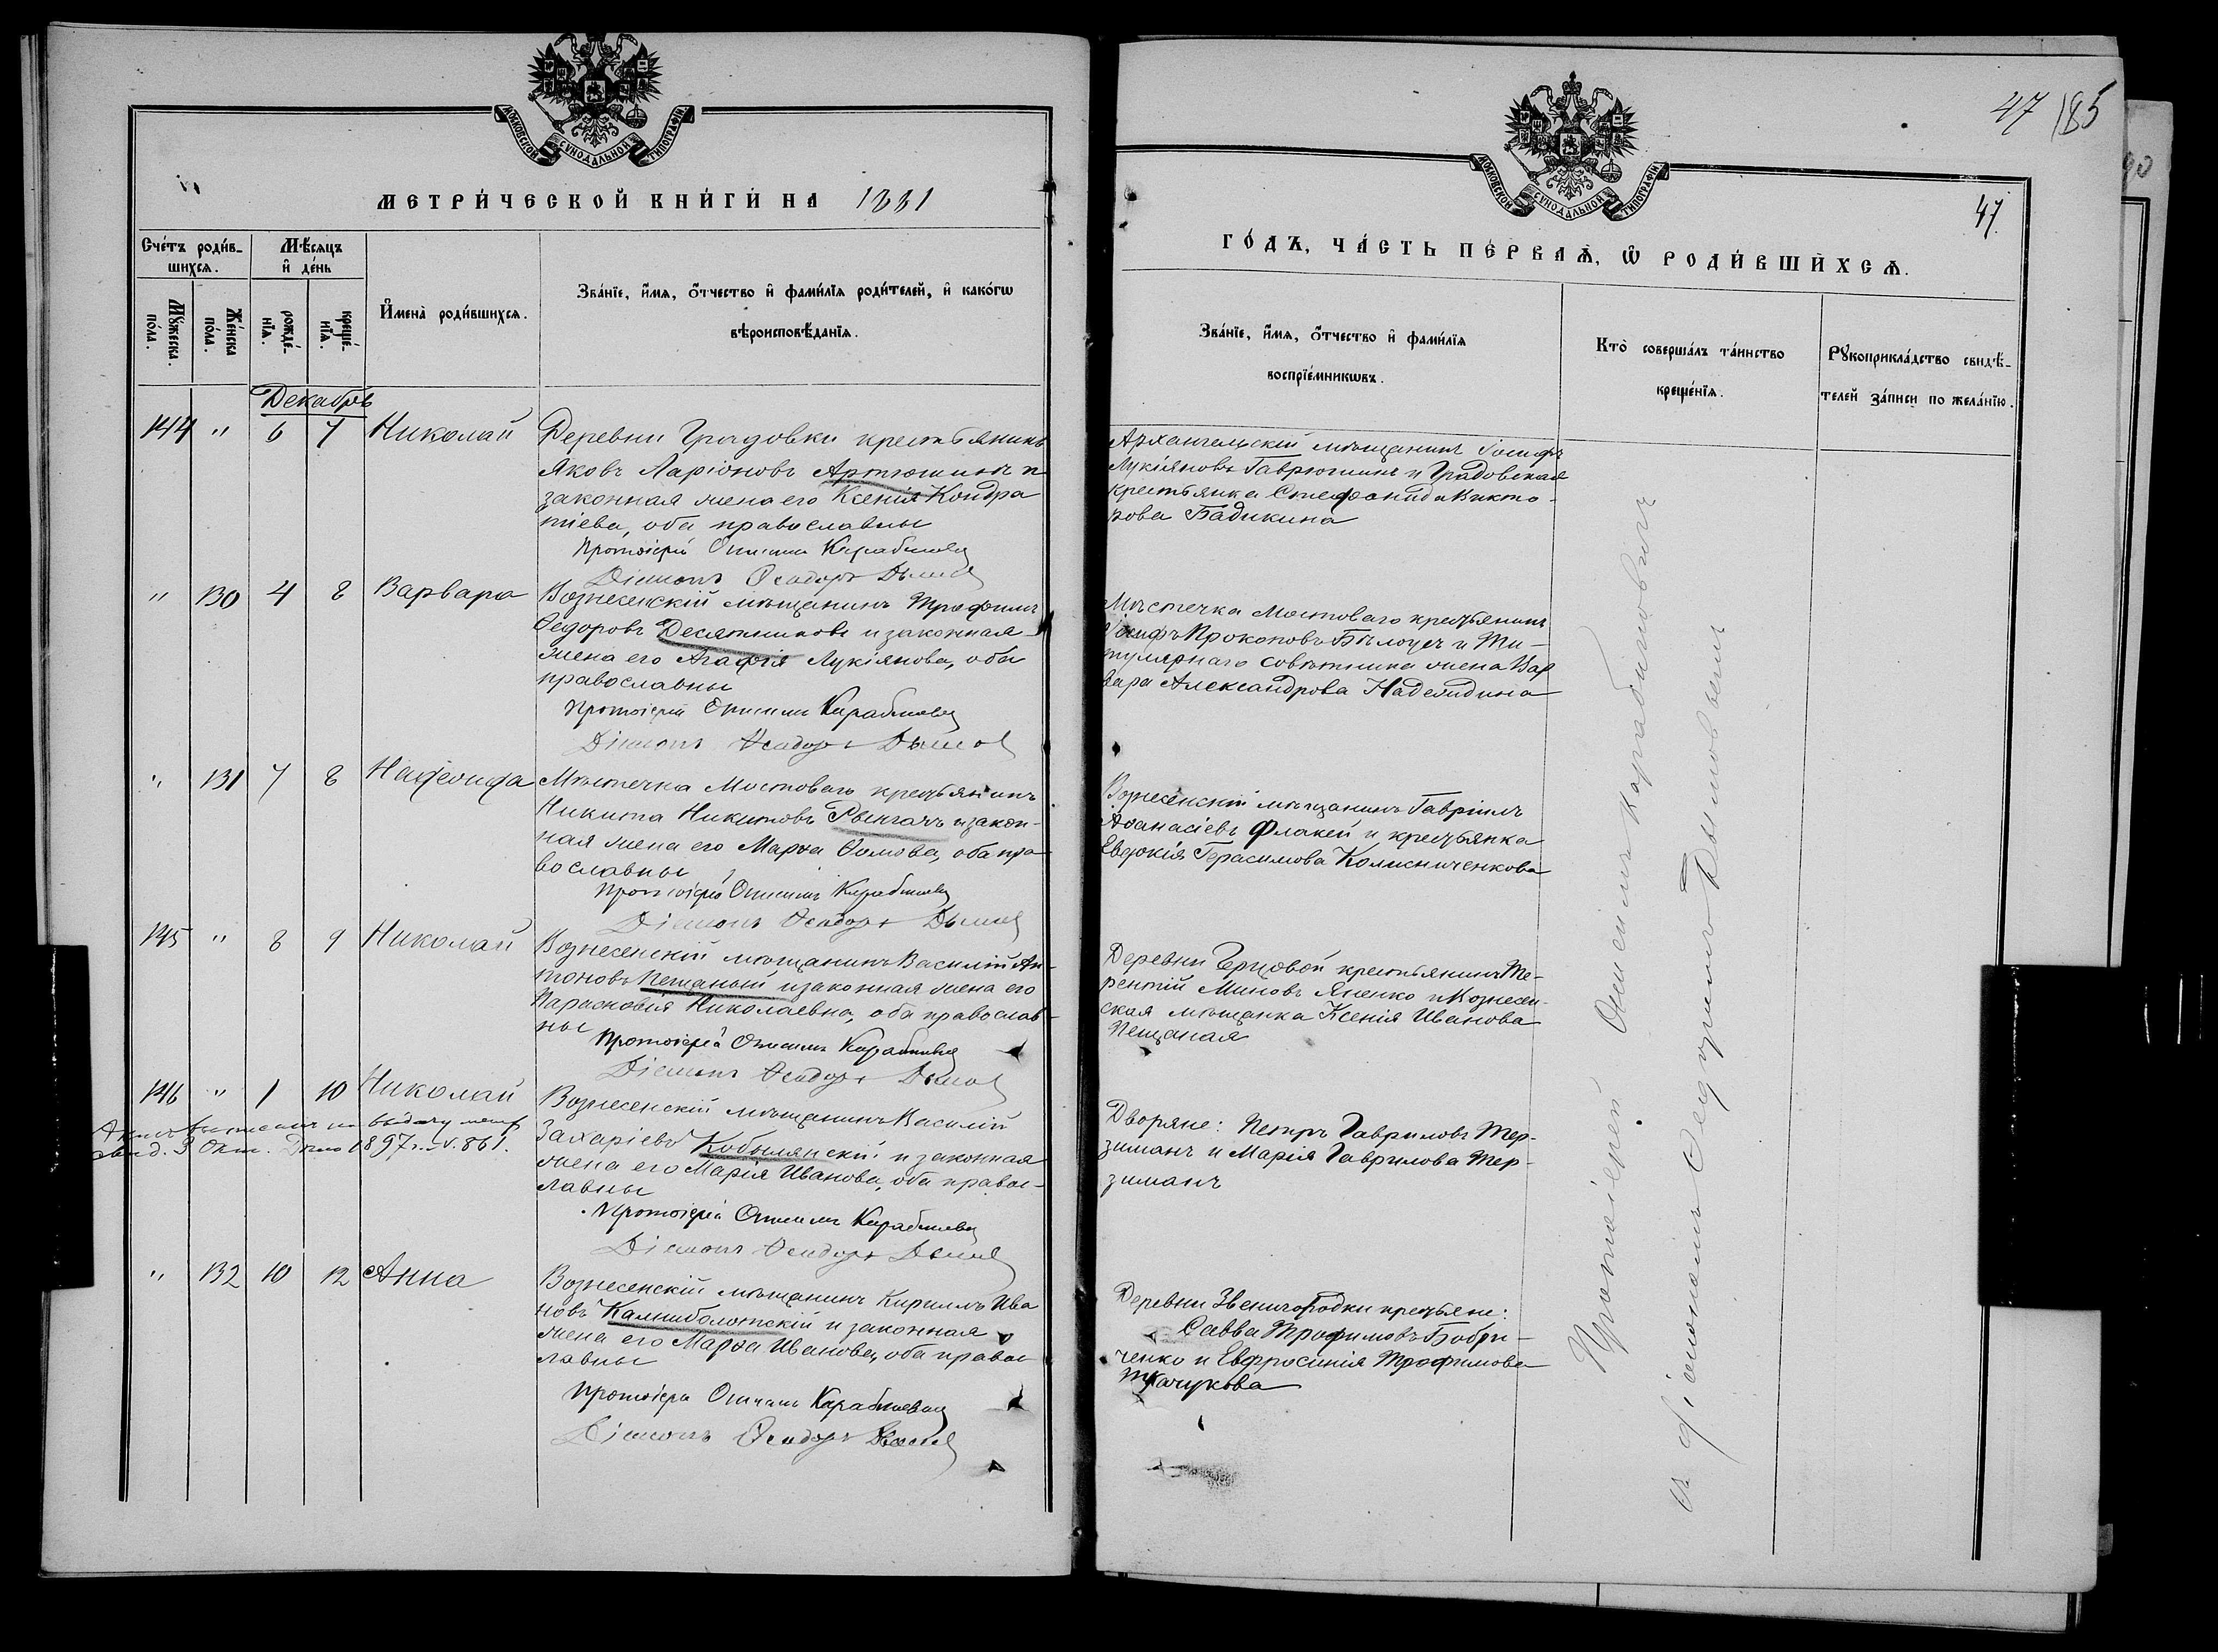 МОСКОВСКОЙ СѴНОДАЛЬНОЙ ТИПОГРАФІИ
МЕТРИ́ЧЕСКОЙ КНИ́ГИ НА 1881
Сче́тъ роди́в-
шихсѧ.
Мѣ́сѧцъ
и҆ де́нь
Мꙋ́жеска
по́ла.
Же́нска
по́ла.
рожде́-
нїѧ.
креще́-
нїѧ.
И҆мена̀ роди́вшихсѧ.
Зва́нїе, и҆́мѧ, ѻ҆́тчество и҆ фами́лїѧ роди́телей, и҆ како́гѡ
вѣроисповѣ́данїѧ.
Декабрь
144 " 6 7 Николай
Деревни Градовки крестьянинъ
Яковъ Ларіоновъ Артюшинъ и
законная жена его Ксенія Кондра
тіева, оба православны
Протоіерей Онисимъ Карабиновичъ
Діаконъ Ѳеодоръ Дымов
" 130 4 8 Варвара
Вознесенскій мѣщанинъ Трофимъ
Ѳедоровъ Десятниковъ и законная
жена его Агафія Лукіянова, оба
православны
Протоіерей Онисимъ Карабиновичъ
Діаконъ Ѳеодоръ Дымов
" 131 7 8 Надежда
Мѣстечка Мостоваго крестьянинъ
Никита Никитовъ Рынгачъ и закон-
ная жена его Марѳа Ѳомова, оба пра-
вославны
Протоіерей Онисимъ Карабиновичъ
Діаконъ Ѳеодоръ Дымов
145 " 8 9 Николай
Вознесенскій мѣщанинъ Василій Ан-
тоновъ Пещаный и законная жена его
Парасковія Николаевна, оба православ-
ны
Протоіерей Онисимъ Карабиновичъ
Діаконъ Ѳеодоръ Дымов
146 " 1 10 Николай
Вознесенскій мѣщанинъ Василій
Захаріевъ Кобылянскій и законная
жена его Марія Иванова, оба правос-
лавны
выдачу метр
свид. 3 Окт. 1897 г. № 861.
Протоіерей Онисимъ Карабиновичъ
Діаконъ Ѳеодоръ Дымов
" 132 10 12 Анна
Вознесенскій мѣщанинъ Кириллъ Ива
новъ Калниболотскій и законная
жена его Марѳа Иванова, оба правос
лавны
Протоіерей Онисимъ Карабиновичъ
Діаконъ Ѳеодоръ Дымов
47 185
90
МОСКОВСКОЙ СѴНОДАЛЬНОЙ ТИПОГРАФІИ
47.
ГО́ДЪ, ЧА́СТЬ ПЕ́РВАѦ, Ѡ҆ РОДИ́ВШИХСѦ.
Зва́нїе, и҆́мѧ, ѻ҆́тчество и҆ фами́лїѧ
воспрїе́мникѡвъ.
Кто̀ соверша́лъ та́инство
креще́нїѧ.
Рꙋкоприкла́дство свидѣ́-
телей за́писи по жела́нїю.
Архангельскій мѣщанинъ Іосифъ
Лукіяновъ Гаврюшинъ и Градовская
крестьянка Стефанида Викто-
рова Бадикина
Мѣстечка Мостоваго крестьянинъ
Іосифъ Прокоповъ Бѣлоусъ и Ти-
тулярнаго совѣтника жена Вар
вара Александрова Надеждина
Вознесенскій мѣщанинъ Гавріилъ
Аѳанасіевъ Флакей и крестьянка
Евдокія Герасимова Колисниченкова
Деревни Ерцовой крестьянинъ Те-
рентій Миновъ Яненко и Вознесен-
ская мѣщанка Ксенія Иванова
Пещаная
Дворяне: Петръ Гавриловъ Тер-
зиманъ и Марія Гаврилова Тер-
зиманъ
Деревни Звенигородки крестьяне:
Савва Трофимовъ Бобри-
ченко и Евфросинія Трофимова
Ткачукова
Протоіерей Онисимъ Карабиновичъ
съ діакономъ Ѳеодоромъ Дымовымъ